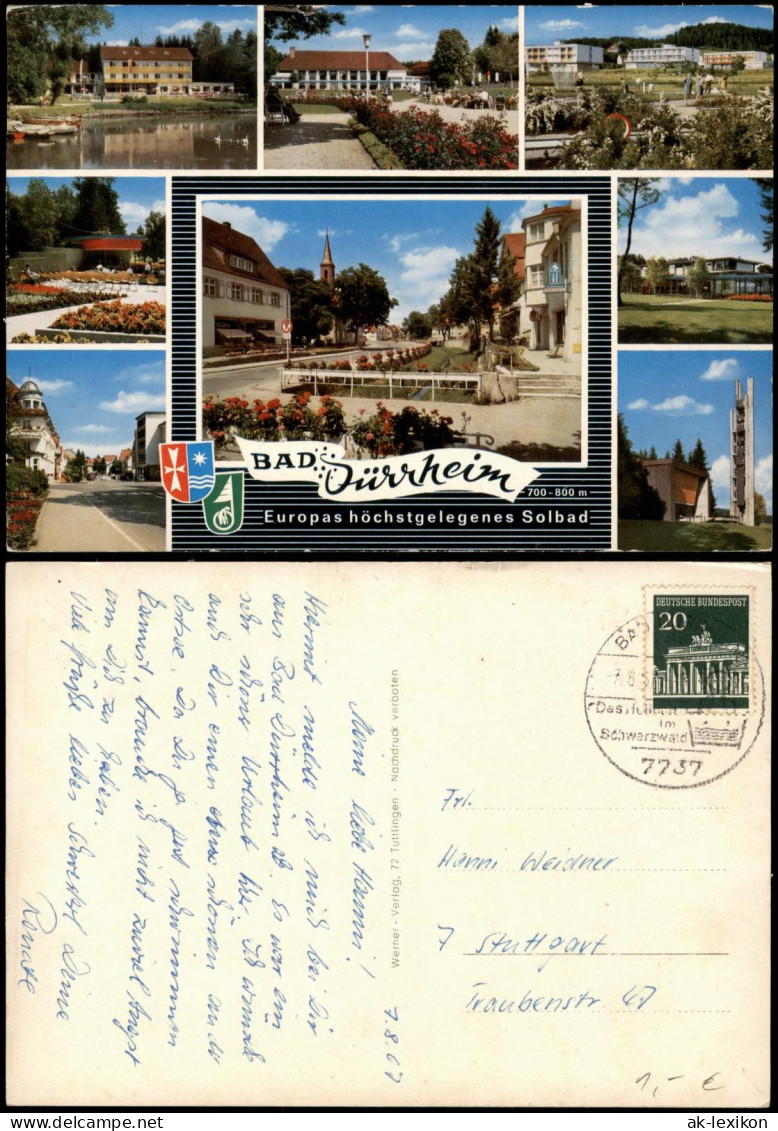 BAD Dürrheim
700-800 m
Europas höchstgelegenes Solbad
Meine liebe Hanni!
Hiermit melde ich mich bei Dir
aus Bad Dürrheim. Es war ein
sehr schöner Urlaub hier. Ich wünsche
auch Dir einen schönen an der
Ostsee. Da Du ja gut schwimmen
kannst, brauche ich nicht zuviel Angst
um Dich zu haben.
Viele Grüße liebes Schwesterl Deine
Renate
7.8.67
Werner-Verlag, 72 Tuttlingen · Nachdruck verboten
DEUTSCHE BUNDESPOST
20
BAD
Das
im
Schwarzwald
7737
Frl.
Hanni Weidner
7 Stuttgart
Traubenstr 47
1,- €
ak-lexikon
ak-lexikon.com